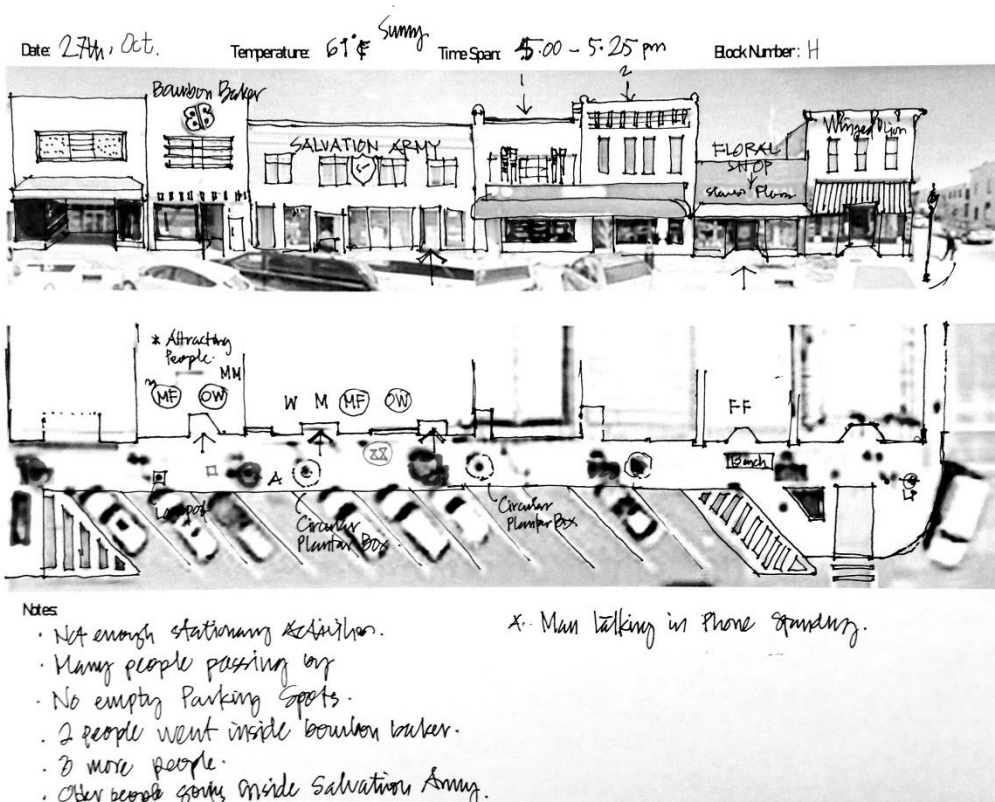 Date: 27th, Oct.
Temperature: 61°F Sunny
Time Span: 5:00 - 5.25 pm
Block Number: H
1
2
Bourbon Baker
SALVATION ARMY
FLORAL
SHOP
Winged Lion
* Attracting
People.
MM
MF
OW
W M MF OW
XX
FF
Bench
A
Circular
Plantar Box
Circular
Plantar Box
LP
Notes:
• Not enough stationary Activities.
• Many people passing by
• No empty Parking Spots.
• 2 people went inside bourbon baker.
• 3 more people.
• Older people going inside Salvation Army.
Man talking in Phone standing.